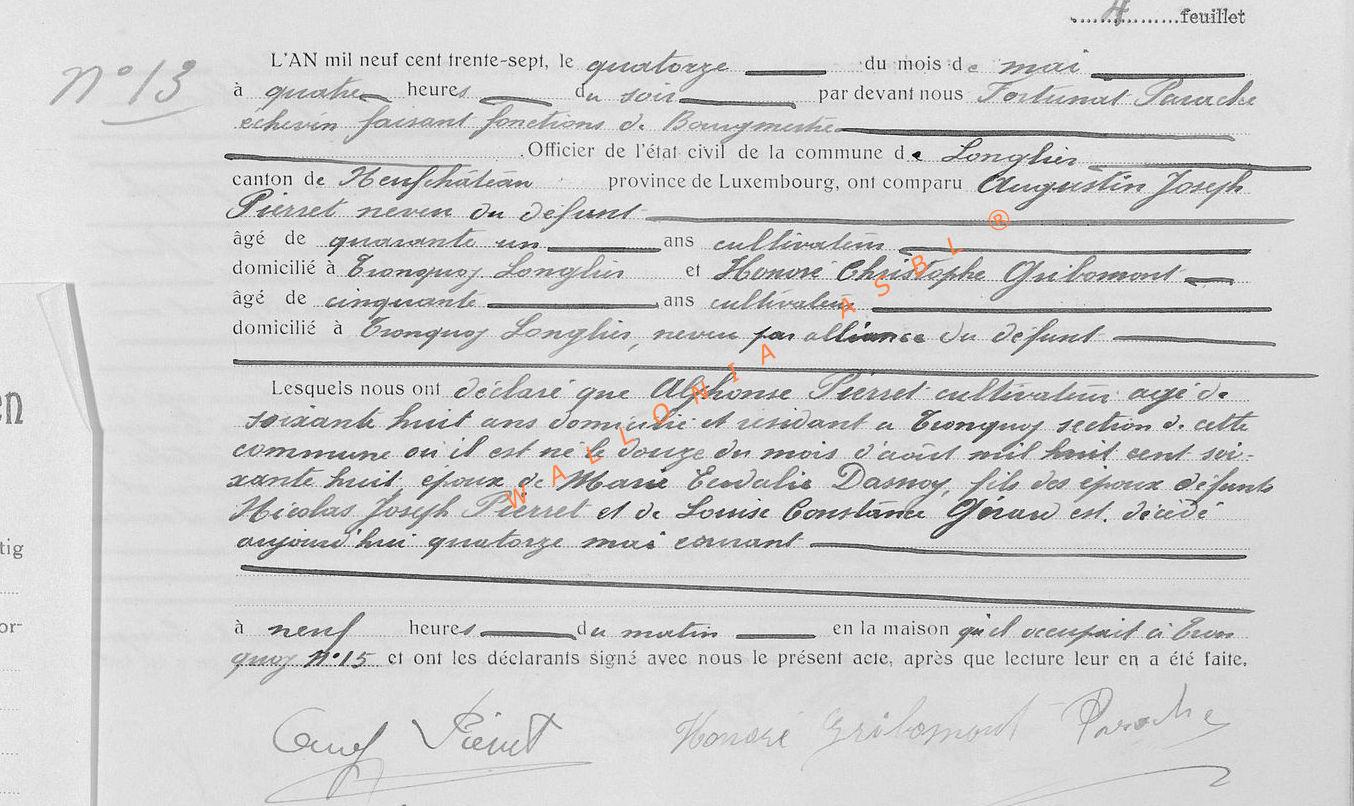 4 feuillet
N° 13
L'AN mil neuf cent trente-sept, le quatorze du mois de mai
à quatre heures du soir par devant nous Fortunat Parache
échevin faisant fonctions de Bourgmestre
Officier de l'état civil de la commune de Longlier
canton de Neufchâteau province de Luxembourg, ont comparu Augustin Joseph
Pierret neveu du défunt
âgé de quarante un ans cultivateur
domicilié à Tronquoy Longlier et Honoré Christophe Gribomont
âgé de cinquante ans cultivateur
domicilié à Tronquoy Longlier, neveu par alliance du défunt
Lesquels nous ont déclaré que Alphonse Pierret cultivateur agé de
soixante huit ans domicilié et résidant à Tronquoy section de cette
commune où il est né le douze du mois d'août mil huit cent soi-
xante huit époux de Marie Eudalie Dasnoy, fils des époux défunts
Nicolas Joseph Pierret et de Louise Constance est décédé
aujourd'hui quatorze mai courant
à neuf heures du matin en la maison qu'il occupait à Tron
quoy N° 15 et ont les déclarants signé avec nous le présent acte, après que lecture leur en a été faite.
Aug Pierret Honoré Gribomont Parache
WALLONIA ASBL ®
en
tig
or-